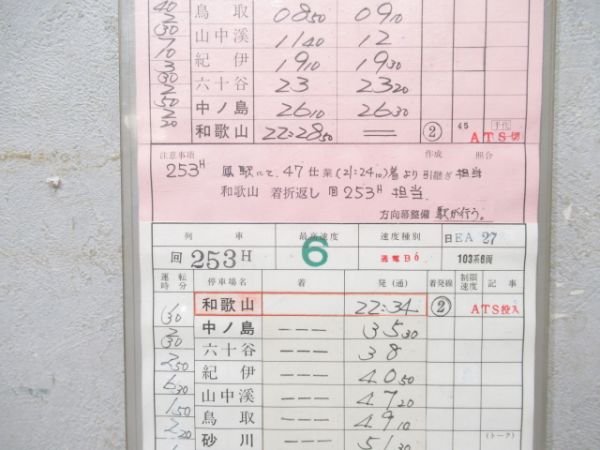 40
2 鳥取 08 50 09 10
30 山中渓 11 40 12
10 紀伊 19 10 19 30
3
30 六十谷 23 23 20
2
50 中ノ島 26 10 26 30
2
20 和歌山 22:28 50 ② 45 ATS切
注意事項 作成 照合
253H 鳳駅にて、47仕業(21:24 10)着より引継ぎ担当
和歌山 着折返し 回253H 担当.
方向幕整備 駅が行う。
列車 最高速度 速度種別 日EA 27
回253H 6 通電B6 103系6両
運転時分 停車場名 着 発(通) 着発線 制限速度 記事
和歌山 22:34 ② ATS投入
1
30 中ノ島 --- 35 30
2
30 六十谷 --- 38
2 50 紀伊 --- 40 50
6 30 山中渓 --- 47 20
1 50 鳥取 --- 49 10
2 20 砂川 --- 51 30 (トーク)